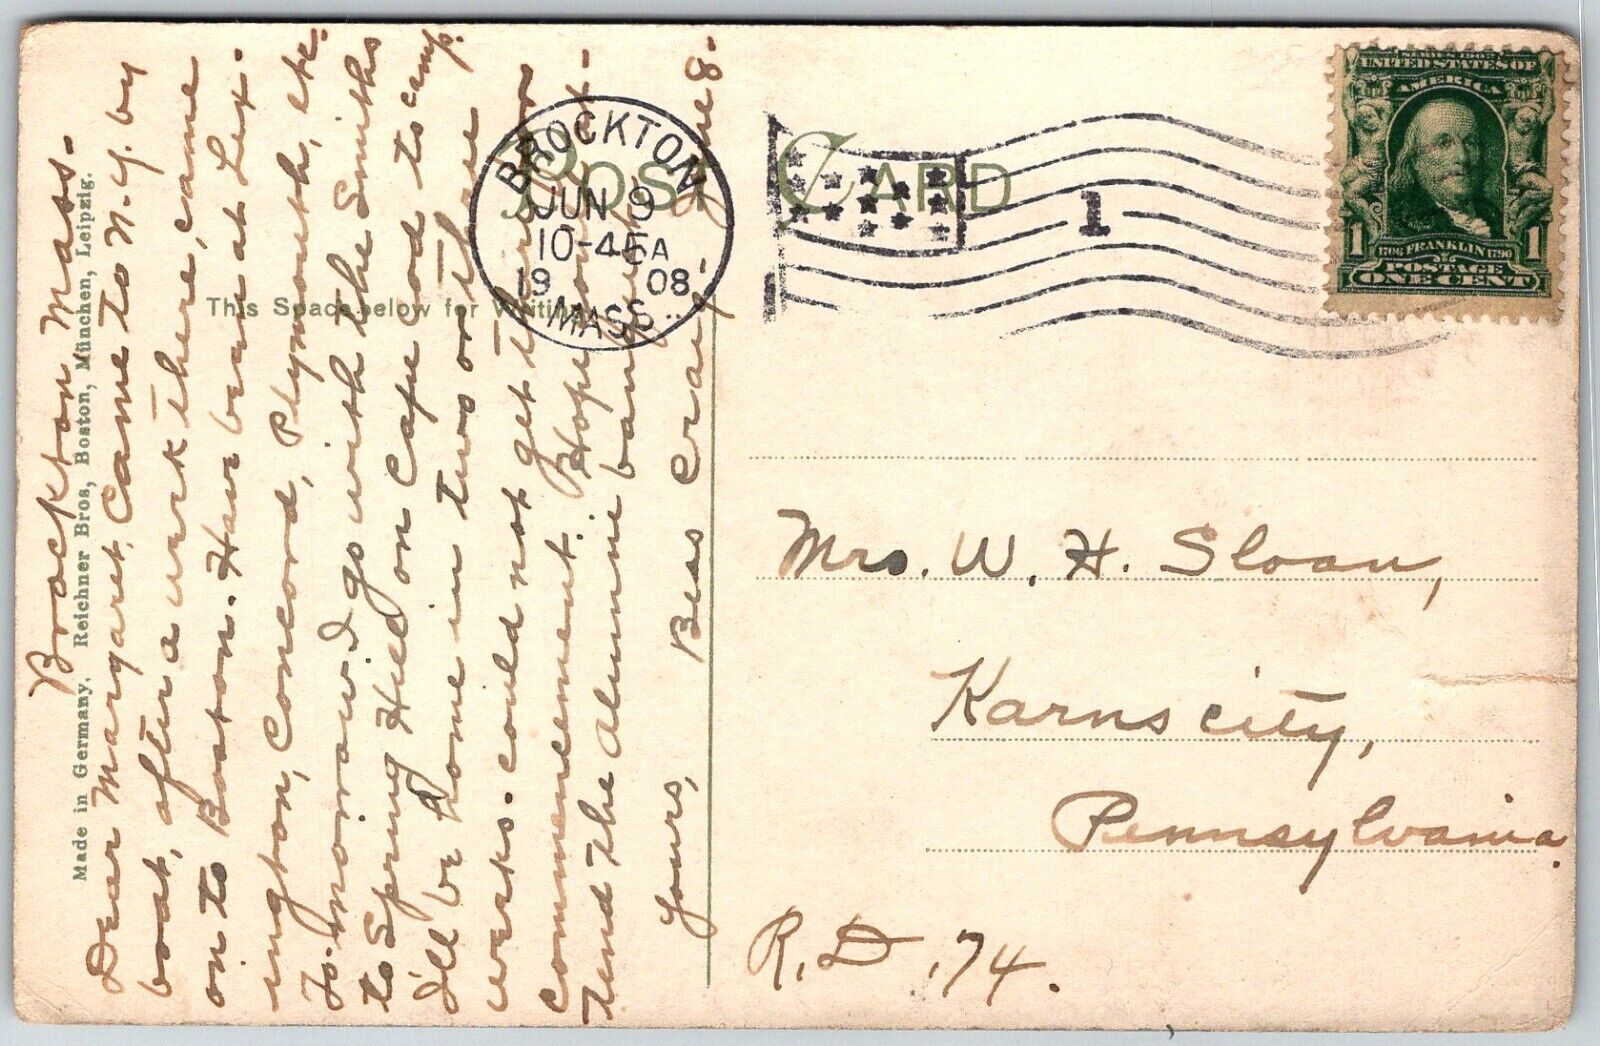 Brockton Mass-
Dear Margaret, Came to N.Y. by
boat, after a week there, came
on to Boston. Have been at Lex-
ington, Concord, Plymouth, etc.
To-morrow I go with the Smiths
to Spring Hill on Cape Cod to camp.
I'll be home in two or three
weeks. could not get there for
commencement. Hope you at-
tend the Alumni banquet.
Yours, Bess Craig- June 8-
Made in Germany, Reichner Bros, Boston, München, Leipzig.
This Space below for Writing
POST CARD
BROCKTON
JUN 9
10-45A
1908
MASS.
1
UNITED STATES OF
AMERICA
1 1706 FRANKLIN 1790 1
POSTAGE
ONE CENT
Mrs. W. H. Sloan,
Karns city,
Pennsylvania.
R.D. 74.